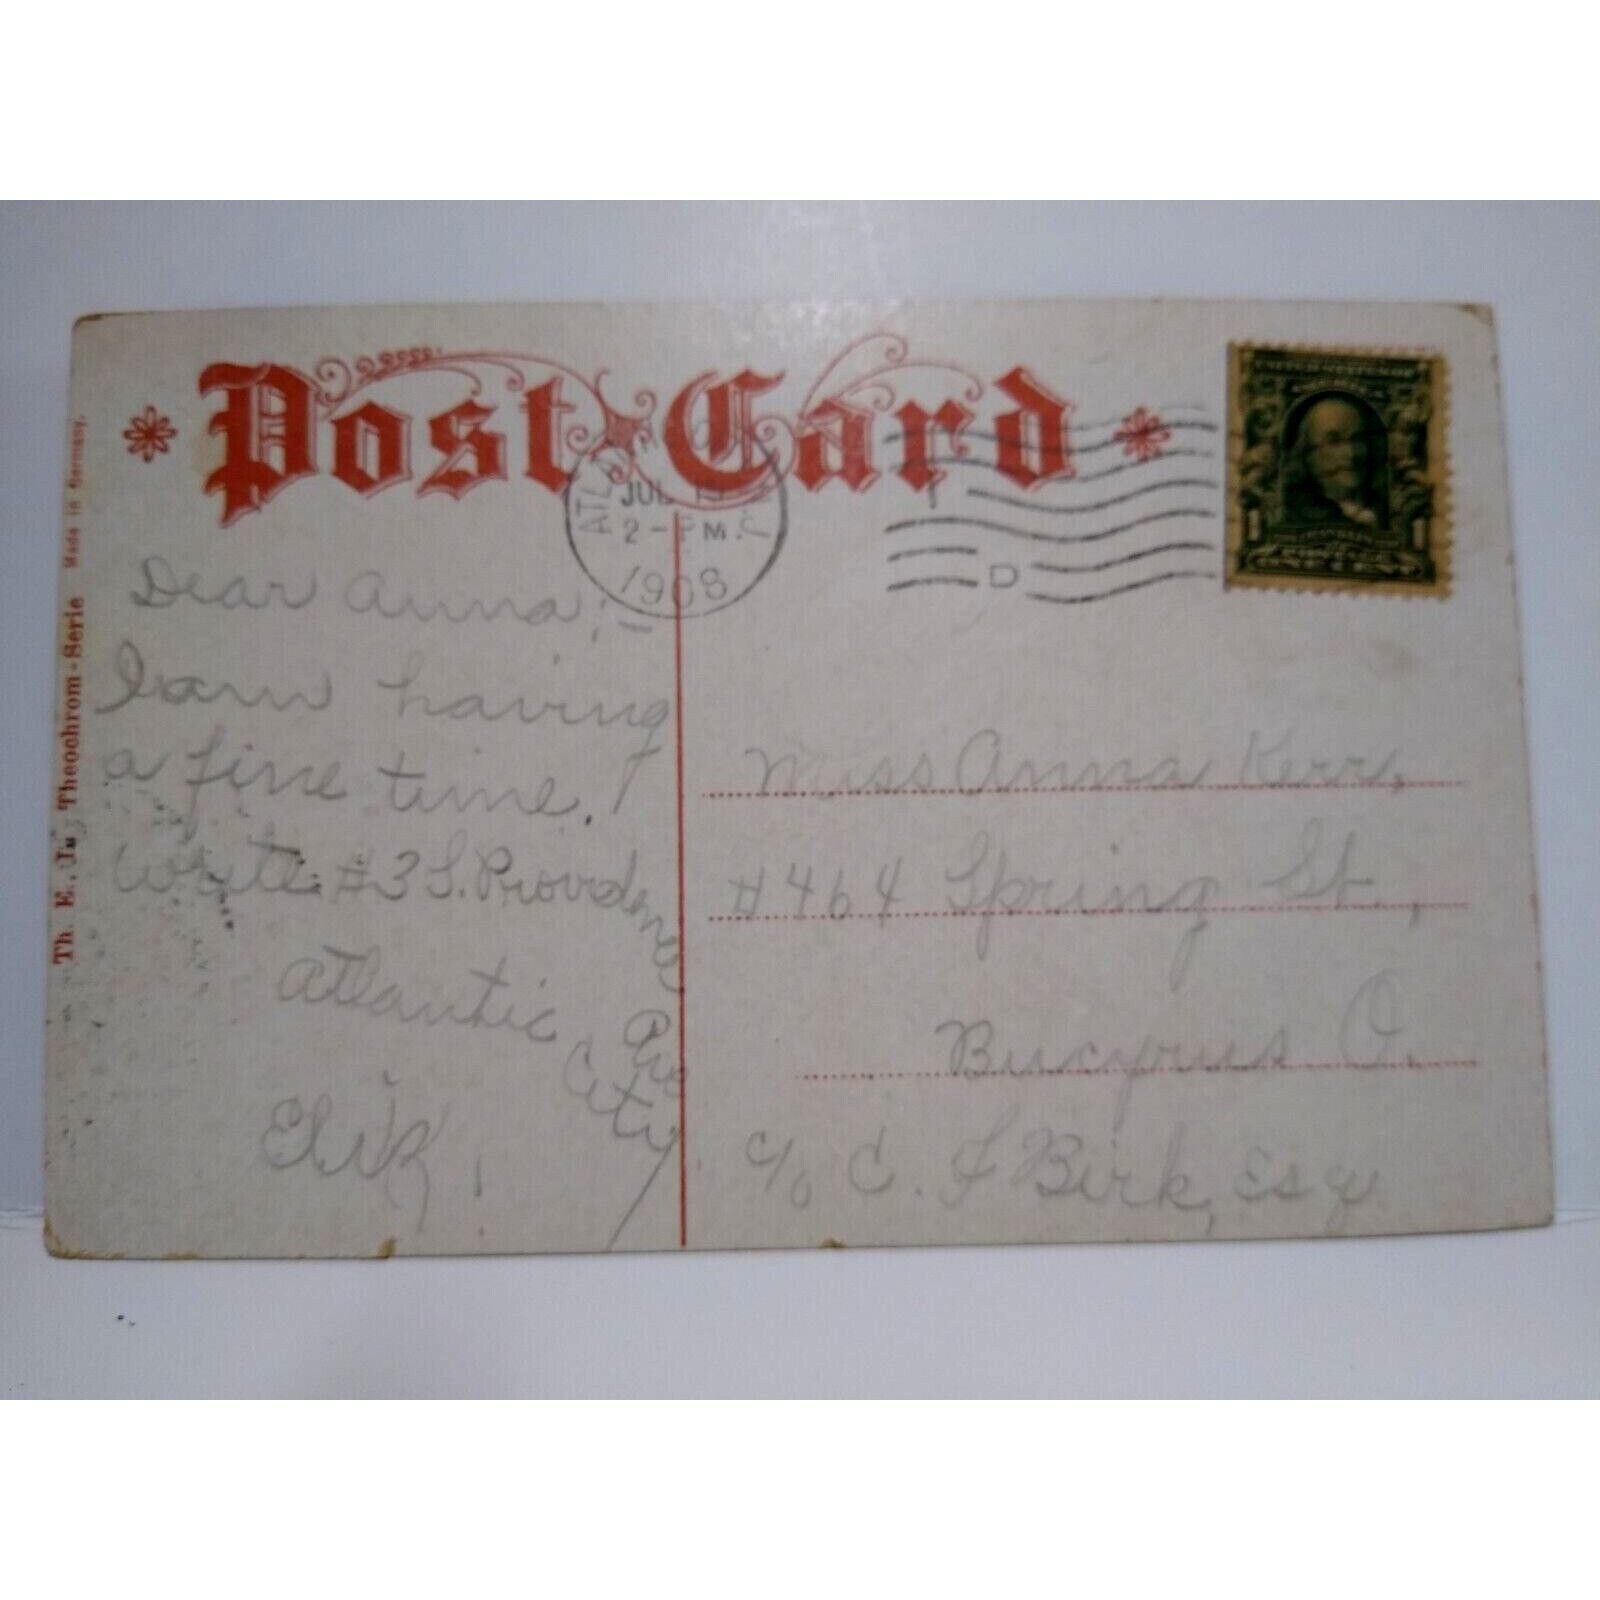 Post Card
ATLANTIC CITY
JUL 15
2 - PM
1908
D
ONE CENT
Dear Anna;—
I am having
a fine time.
Write #3 S. Providence Ave
Atlantic City.
Miss Anna Kerr,
#464 Spring St.,
Bucyrus O.
c/o C. F Birk, Esqy.
Th. E. L. Theochrom-Serie Made in Germany.